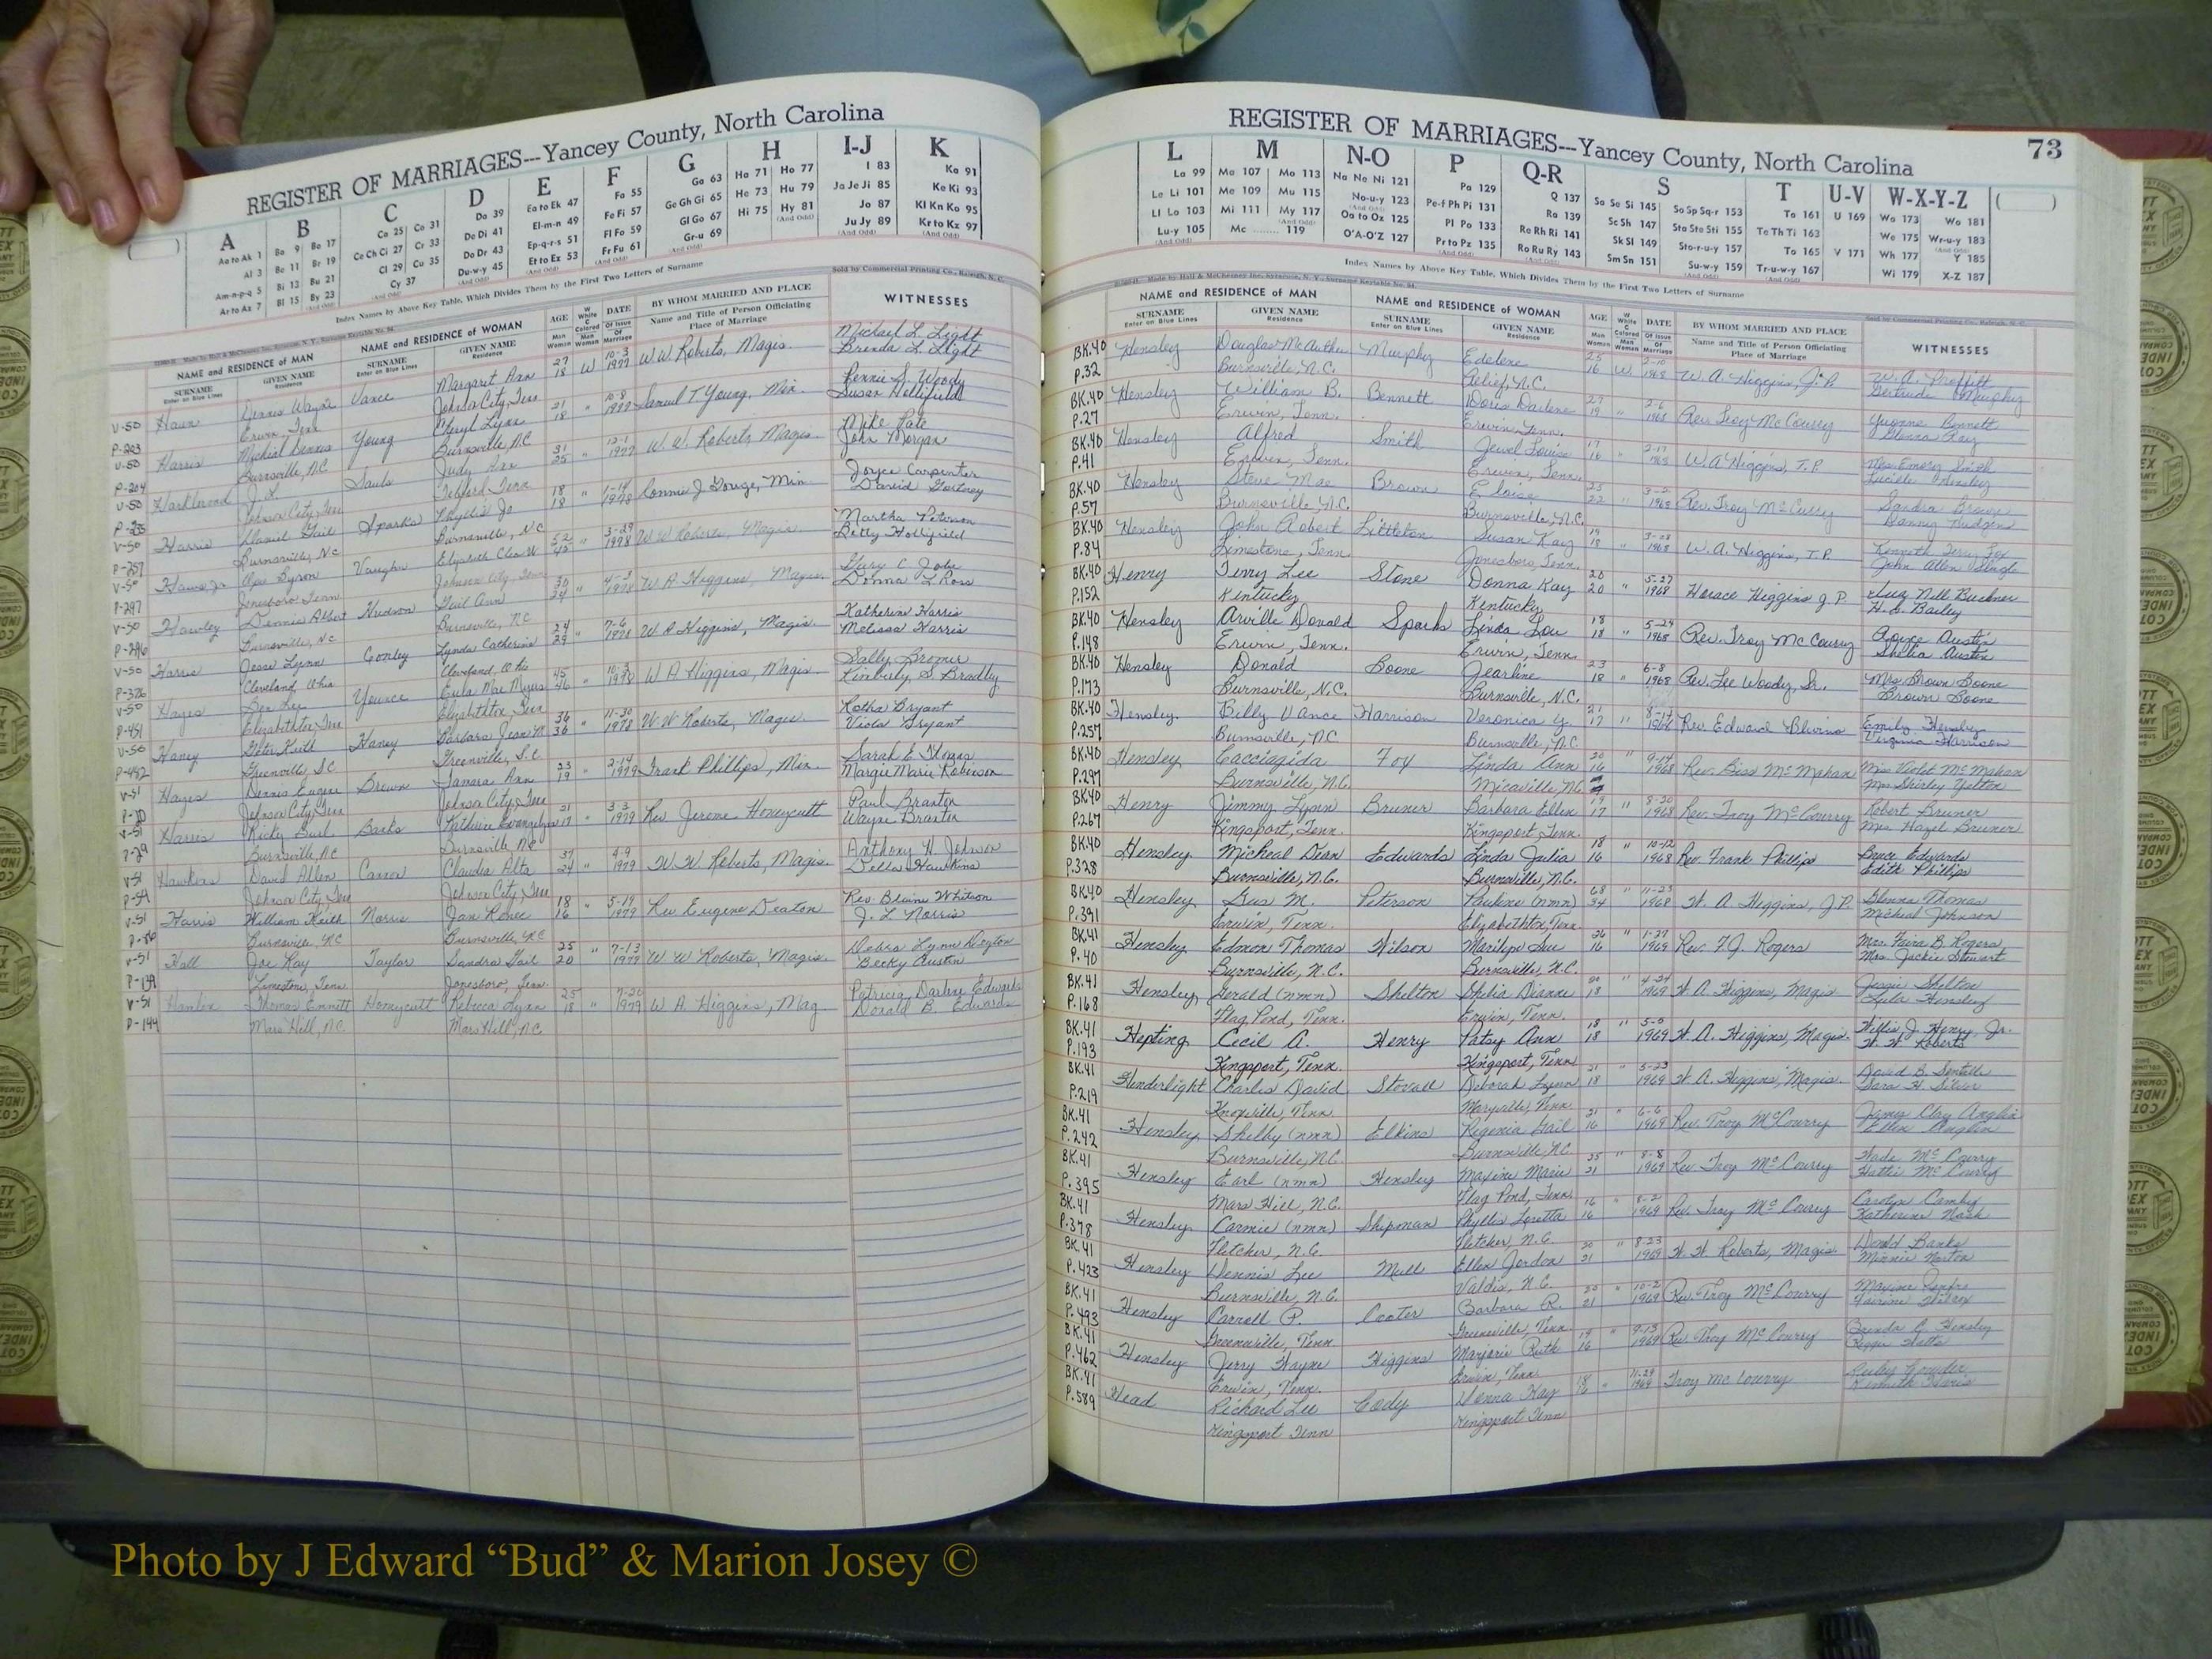 REGISTER OF MARRIAGES---Yancey County, North Carolina
A B C D E F G H I-J K
Aa to Ak 1 Ba 9 Bo 17 Ca 25 Co 31 Da 39 Ea to Ek 47 Fa 55 Ga 63 Ha 71 Ho 77 I 83 Ka 91
Al 3 Be 11 Br 19 Ce Ch Ci 27 Cr 33 De Di 41 El-m-n 49 Fe Fi 57 Ge Gh Gi 65 He 73 Hu 79 Ja Je Ji 85 Ke Ki 93
Am-n-p-q 5 Bi 13 Bu 21 Cl 29 Cu 35 Do Dr 43 Ep-q-r-s 51 Fl Fo 59 Gl Go 67 Hi 75 Hy 81 Jo 87 Kl Kn Ko 95
Ar to Az 7 Bl 15 By 23 Cy 37 Du-w-y 45 Et to Ex 53 Fr Fu 61 Gr-u 69 Ju Jy 89 Kr to Kz 97
Index Names by Above Key Table, Which Divides Them by the First Two Letters of Surname
Sold by Commercial Printing Co., Raleigh, N. C.
NAME and RESIDENCE of MAN NAME and RESIDENCE of WOMAN AGE DATE BY WHOM MARRIED AND PLACE WITNESSES
SURNAME Enter on Blue Lines GIVEN NAME Residence SURNAME Enter on Blue Lines GIVEN NAME Residence Man Woman W White C Colored Man Woman Of Issue Of Marriage Name and Title of Person Officiating Place of Marriage
V-50 Haun Dennis Wayne Vance Margaret Ann 27 18 W 10-3 1977 W W Roberts, Magis. Michael L. Light
P-203 Erwin, Tenn Johnson City, Tenn Brenda L. Light
V-50 Harris Michial Dennis Young Cheryl Lynn 21 18 " 10-8 1977 Samuel T Young, Min. Rennie S. Woody
P-204 Burnsville, NC Burnsville, NC Susan Hollifield
V-50 Saults Judy Ann 31 25 " 12-1 1977 W. W. Roberts, Magis. Mike Pate
Johnson City, Tenn John Morgan
V-50 Harris Daniel Gail Sparks Phyllis Jo 18 18 " 1-14 1978 Connie J Gouge, Min Joyce Carpenter
P-257 Burnsville, NC Burnsville, NC David
V-50 Haws Jr Byron Vaughn Elizabeth 52 " 3-29 1978 W W Roberts, Magis Martha Peterson
P-297 Jonesboro Tenn Johnson City, Tenn Betty Hollifield
V-50 Hawley Dennis Albert Hudson Gail Ann 30 24 " 4-3 1978 W A Higgins, Magis. Gary C Jobe
P-296 Burnsville, NC Burnsville, NC Donna L Ross
V-50 Harris Jesse Lynn Conley Lynda Catherine 24 29 " 7-6 1978 W A Higgins, Magis. Katherine Harris
P-326 Cleveland, Ohio Cleveland, Ohio Melissa Harris
V-50 Hayes Younce Eula Mae Myers 45 46 " 1978 W A Higgins, Magis. Sally
P-451 Elizabethton, Tenn Elizabethton Tenn Kimberly S. Bradley
V-50 Haney Peter Keith Haney Barbara Jean 36 36 " 11-30 1978 W. W Roberts, Magis. Kotha Bryant
P-482 Greenville, S.C. Greenville, S.C Viola Bryant
V-51 Hayes Dennis Eugene Brown Tamara Ann 23 19 " 2-14 1979 Frank Phillips, Min. Sarah E Thomas
Johnson City, Tenn Johnson City, Tenn Margie Marie Roberson
V-51 Harris Ricky Burl Banks Kathrine Evangelyn 21 17 " 3-3 1979 Rev Jerome Honeycutt Paul Braxton
P-29 Burnsville, NC Burnsville, NC Wayne Braxton
V-51 Hawkins David Allen Carson Claudia Alta 37 24 " 4-9 1979 W. W Roberts, Magis. Anthony H Johnson
Johnson City, Tenn Johnson City, Tenn Della Hawkins
V-51 Harris William Keith Norris Jan Renee 18 16 " 5-19 1979 Rev Eugene Deaton Rev. Blaine Whitson
Burnsville, NC Burnsville, NC J. L Norris
V-51 Hall Joe Kay Taylor Sandra Gail 25 20 " 7-13 1979 W W Roberts, Magis. Debra Lynn Deyton
P-139 Limestone, Tenn Jonesboro, Tenn Becky Austin
V-51 Hamlin Thomas Emmitt Honeycutt Rebecca Lynn 25 18 " 7-20 1979 W A. Higgins, Mag. Patricia Darlene Edwards
P-144 Mars Hill, N.C. Mars Hill, N.C. Donald B. Edwards
REGISTER OF MARRIAGES---Yancey County, North Carolina 73
L M N-O P Q-R S T U-V W-X-Y-Z
La 99 Ma 107 Mo 113 Na Ne Ni 121 Pa 129 Q 137 Sa Se Si 145 So Sp Sq-r 153 Ta 161 U 169 Wa 173 Wo 181
Le Li 101 Me 109 Mu 115 No-u-y 123 Pe-f Ph Pi 131 Ra 139 Sc Sh 147 Sta Ste Sti 155 Te Th Ti 163 We 175 Wr-u-y 183
Ll Lo 103 Mi 111 My 117 Oa to Ox 125 Pl Po 133 Re Rh Ri 141 Sk Sl 149 Sto-r-u-y 157 To 165 V 171 Wh 177 Y 185
Lu-y 105 Mc 119 O'A-O'Z 127 Pr to Pz 135 Ro Ru Ry 143 Sm Sn 151 Su-w-y 159 Tr-u-w-y 167 Wi 179 X-Z 187
Index Names by Above Key Table, Which Divides Them by the First Two Letters of Surname
NAME and RESIDENCE of MAN NAME and RESIDENCE of WOMAN AGE DATE BY WHOM MARRIED AND PLACE WITNESSES
SURNAME Enter on Blue Lines GIVEN NAME Residence SURNAME Enter on Blue Lines GIVEN NAME Residence Man Woman W White C Colored Man Woman Of Issue Of Marriage Name and Title of Person Officiating Place of Marriage
BK.40 Hensley Douglas McArthur Murphy Edelene 25 16 W 2-10 1968 W. A. Higgins, J.P. W. A. Proffitt
P.32 Burnsville, N.C. Relief, N.C. Gertrude Murphy
BK.40 Hensley William B. Bennett Doris Darlene 27 19 " 2-6 1968 Rev. Troy McCourry Yvonne Bennett
P.27 Erwin, Tenn. Erwin, Tenn. Glenna Ray
BK.40 Hensley Alfred Smith Jewel Louise 17 16 " 2-17 1968 W. A Higgins, J.P. Mrs. Emory Smith
P.41 Erwin, Tenn. Erwin, Tenn. Lucille Hensley
BK.40 Hensley Steve Mac Brown Eloise 23 22 " 3-2 1968 Rev. Troy McCurry Sandra Brown
P.57 Burnsville, N.C. Burnsville, N.C. Danny Hudgins
BK.40 Hensley John Robert Littleton Susan Kay 19 18 " 1968 W. A. Higgins, J.P. Kenneth Terry Fox
P.84 Limestone, Tenn. Jonesboro, Tenn. John Allen
BK.40 Henry Terry Lee Stone Donna Kay 20 20 " 5-27 1968 Horace Higgins J P Nell Buckner
P.152 Kentucky Kentucky H. G. Bailey
BK.40 Hensley Arville Donald Sparks Linda Lou 18 18 " 5-24 1968 Rev. Troy McCoury Joyce Austin
P.148 Erwin, Tenn. Erwin, Tenn. Shelia Austin
BK.40 Hensley Donald Boone Jearline 23 18 " 6-8 1968 Rev. Lee Woody, Sr. Mrs Brown Boone
P.173 Burnsville, N.C. Burnsville, N.C. Brown Boone
BK.40 Hensley Billy Vance Harrison Veronica Y. 21 17 " 8-17 1968 Rev. Edward Blevins Emily Hensley
P.257 Burnsville, NC Burnsville, NC Virginia Harrison
BK.40 Hensley Cacciagida Foy Linda Ann 20 16 " 9-14 1968 Rev. Biss McMahan Miss Violet McMahan
P.297 Burnsville, N.C. Micaville, N.C. Mrs Shirley Yelton
BK40 Henry Jimmy Lynn Bruner Barbara Ellen 19 17 " 8-30 1968 Rev. Troy McCourry Robert Bruner
P.267 Kingsport, Tenn. Kingsport, Tenn. Mrs. Hazel Bruner
BK.40 Hensley Micheal Dean Edwards Linda Julia 18 16 " 10-12 1968 Rev. Frank Phillips Bruce Edwards
P.328 Burnsville, N.C. Burnsville, N.C. Edith Phillips
BK40 Hensley Gus M. Peterson Pauline (nmn) 68 34 " 11-23 1968 W. A Higgins, J.P. Glenna Thomas
P.391 Erwin, Tenn. Elizabethton, Tenn. Micheal Johnson
BK.41 Hensley Edmon Thomas Wilson Marilyn Sue 26 16 " 1-27 1969 Rev. F.J. Rogers Mrs. Faira B. Rogers
P.40 Burnsville, N.C. Burnsville, N.C. Mrs. Jackie Stewart
BK.41 Hensley Gerald (nmn) Shelton Shelia Dianne 20 18 " 4-24 1969 W. A. Higgins, Magis Jessie Shelton
P.168 Flag Pond, Tenn. Erwin, Tenn. Lula Hensley
BK.41 Hepting Cecil A. Henry Patsy Ann 18 18 " 5-5 1969 W. A. Higgins, Magis. Willis J. Henry, Jr.
P.193 Kingsport, Tenn. Kingsport, Tenn W. W Roberts
BK.41 Henderlight Charles David Stovall Deborah Lynn 21 18 " 5-23 1969 W. A Higgins, Magis. David B.
P.219 Knoxville, Tenn. Maryville, Tenn Sara H. Silver
BK.41 Hensley Shelby (nmn) Elkins Regenia Gail 21 16 " 6-6 1969 Rev. Troy McCourry James Clay Anglin
P.242 Burnsville, N.C. Burnsville, N.C. Ellen Anglin
BK.41 Hensley Earl (nmn) Hensley Maxine Marie 25 21 " 8-8 1969 Rev Troy McCourry Wade McCourry
P.395 Mars Hill, N.C. Flag Pond, Tenn. Hattie McCourry
BK.41 Hensley Carmie (nmn) Shipman Phyllis Loretta 16 16 " 8-2 1969 Rev. Troy McCourry Carolyn Camby
P.378 Fletcher, N.C. Fletcher, N.C. Katherine Nash
BK.41 Hensley Dennis Lee Mull Ellen Jordon 20 21 " 8-23 1969 W. W. Roberts, Magis Donald Banks
P.423 Burnsville, N.C. Valdis, N.C. Minnie Norton
BK.41 Hensley Carroll P. Cooter Barbara R. 20 21 " 10-2 1969 Rev. Troy McCourry Maxine
P.493 Greeneville, Tenn. Greeneville, Tenn.
BK.41 Hensley Jerry Wayne Higgins Marjorie Ruth 19 16 " 9-13 1969 Rev. Troy McCourry Brenda C. Hensley
P.462 Erwin, Tenn. Erwin, Tenn
BK.41 Head Richard Lee Cody Donna Kay 18 16 " 11-29 1969 Troy McCourry Ruby
P.589 Kingsport Tenn Kingsport Tenn
Photo by J Edward “Bud” & Marion Josey ©